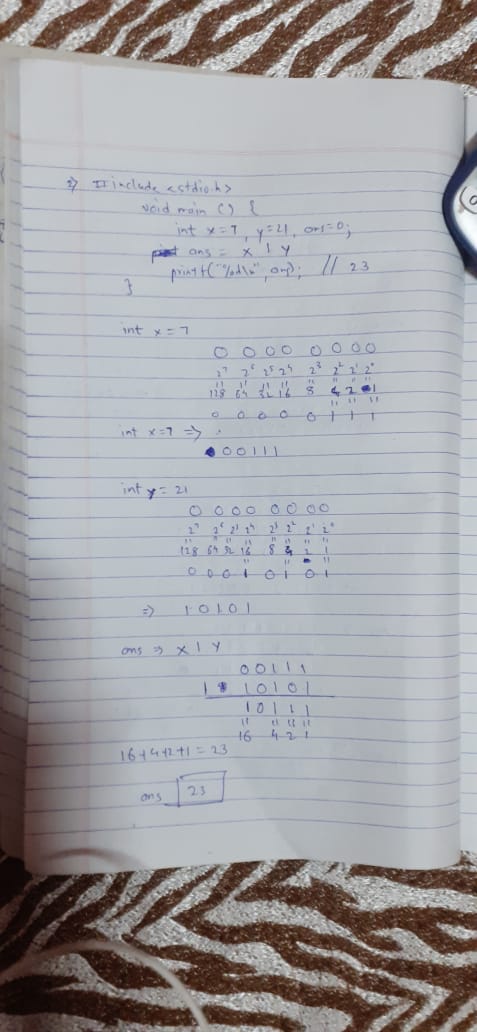 2) #include <stdio.h>
void main () {
int x=7, y=21, ans=0;
ans = x | y
printf("%d\n", ans); // 23
}
int x = 7
0 0 0 0 0 0 0 0
2⁷ 2⁶ 2⁵ 2⁴ 2³ 2² 2¹ 2⁰
" " " " " " "
128 64 32 16 8 4 2 1
" " "
0 0 0 0 0 1 1 1
int x=7 =>
0 0 1 1 1
int y = 21
0 0 0 0 0 0 0 0
2⁷ 2⁶ 2⁵ 2⁴ 2³ 2² 2¹ 2⁰
" " " " " " " "
128 64 32 16 8 4 2 1
0 0 0 1 0 1 0 1
=> 1 0 1 0 1
ans => x | y
0 0 1 1 1
| 1 0 1 0 1
1 0 1 1 1
" " " "
16 4 2 1
16+4+2+1 = 23
ans 23